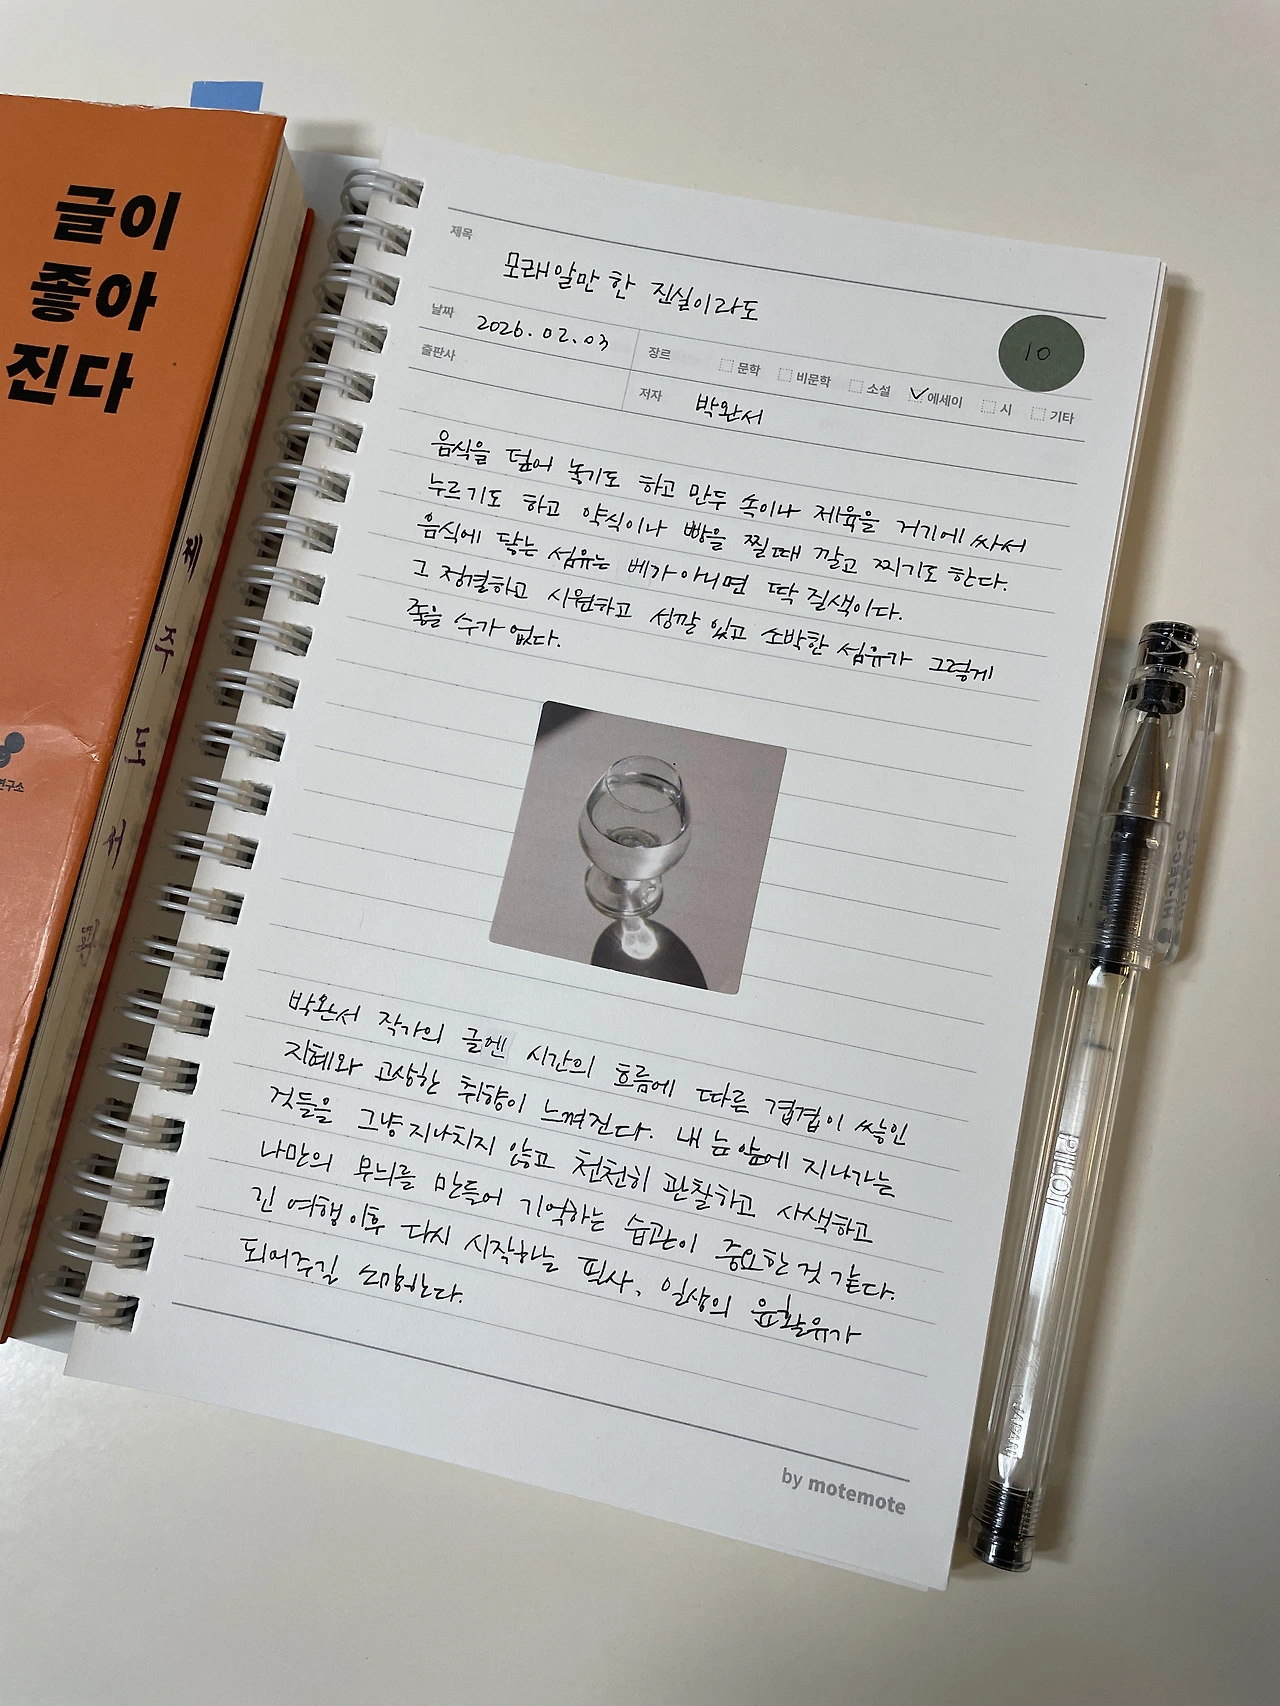 글이
좋아
진다
연구소
제주도서관
제목
모래알만 한 진실이라도
날짜 2026.02.03
장르 문학 비문학 소설 에세이 시 기타
10
출판사
저자 박완서
음식을 덮어 놓기도 하고 만두 속이나 제육을 거기에 싸서
누르기도 하고 약식이나 빵을 찔 때 깔고 찌기도 한다.
음식에 닿는 섬유는 베가 아니면 딱 질색이다.
그 정결하고 시원하고 성깔 있고 소박한 섬유가 그렇게
좋을 수가 없다.
박완서 작가의 글엔 시간의 흐름에 따른 겹겹이 쌓인
지혜와 고상한 취향이 느껴진다. 내 눈 앞에 지나가는
것들을 그냥 지나치지 않고 천천히 관찰하고 사색하고
나만의 무늬를 만들어 기억하는 습관이 중요한 것 같다.
긴 여행 이후 다시 시작하는 필사, 일상의 윤활유가
되어주길 소망한다.
by motemote
PILOT
JAPAN